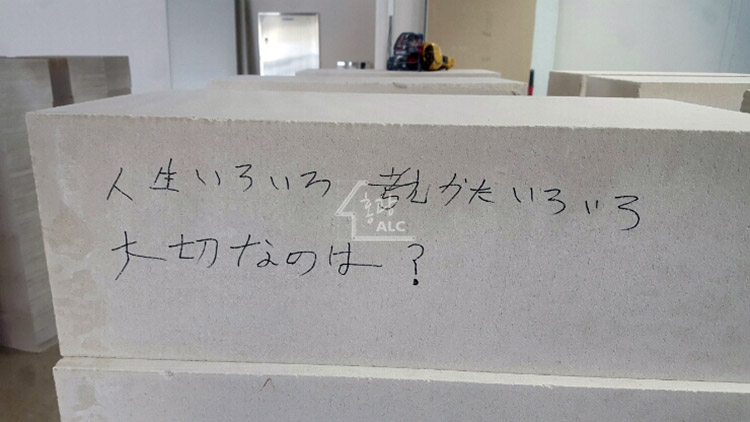 人生いろいろ 考えかたいろいろ
大切なのは?
홍광
ALC